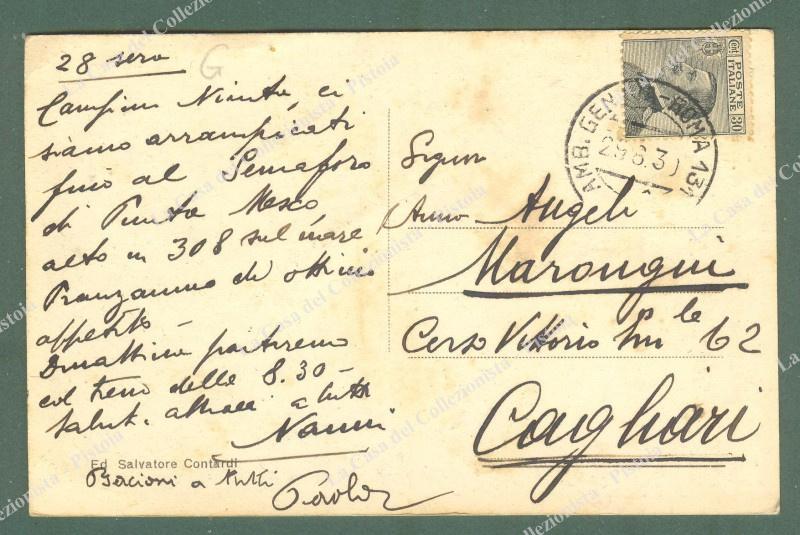 28 sera
G
siamo arrampicati
fino al Semaforo
di Punta Mesco
alto m 308 sul mare
Pranzammo di ottimo
appetito
Domattina partiremo
col treno delle 8.30 -
saluti a tutti
Nanni
Ed Salvatore Contardi
Bacioni a tutti
Paola
Cent 30
POSTE ITALIANE
AMB. GEN ROMA 131
29.6.30
Signor
Angeli
Marongiu
Corso Vittorio Em le 62
Cagliari
La Casa del Collezionista - Pistoia